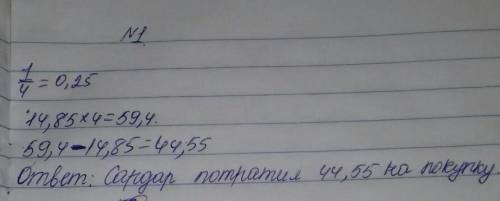 №1
1/4 = 0,25
14,85×4=59,4.
59,4-14,85=44,55
Ответ: Сардар потратил 44,55 на покупку.